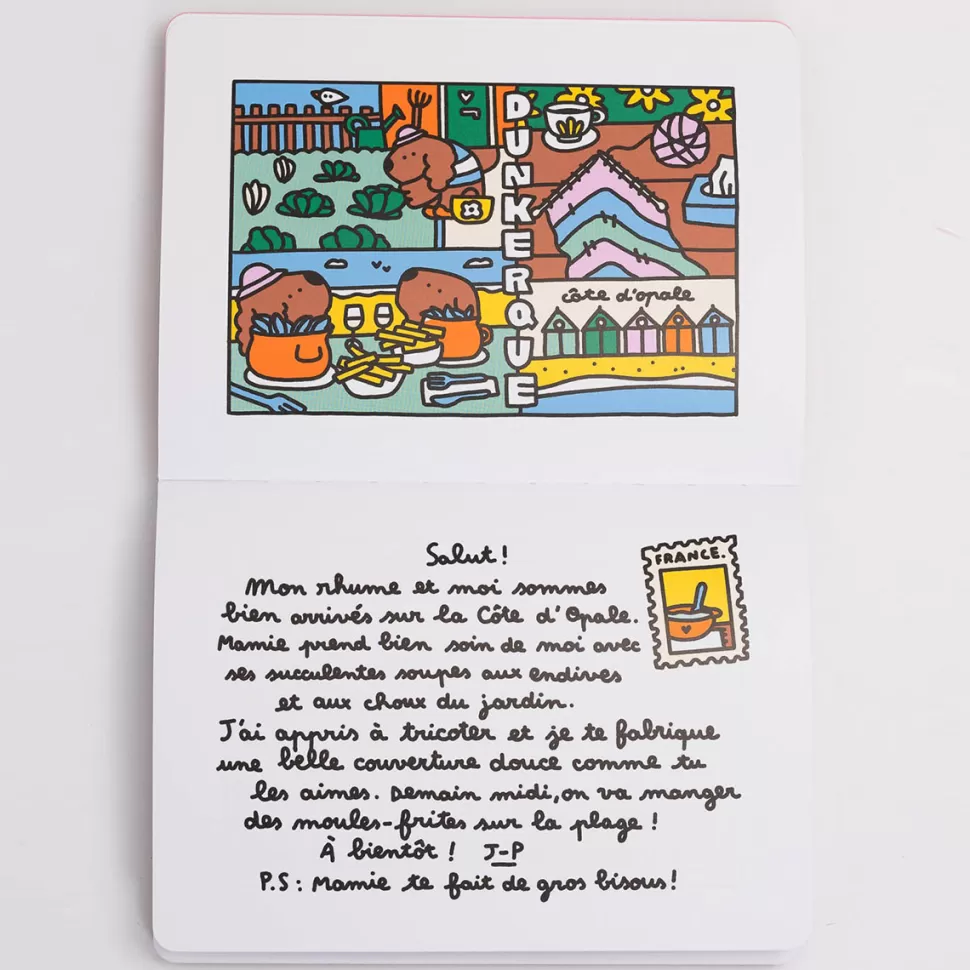 DUNKERQUE
côte d'opale
Salut !
FRANCE.
Mon rhume et moi sommes
bien arrivés sur la Côte d'Opale.
Mamie prend bien soin de moi avec
ses succulentes soupes aux endives
et aux choux du jardin.
J'ai appris à tricoter et je te fabrique
une belle couverture douce comme tu
les aimes. Demain midi, on va manger
des moules-frites sur la plage !
À bientôt ! J-P
P.S : Mamie te fait de gros bisous !